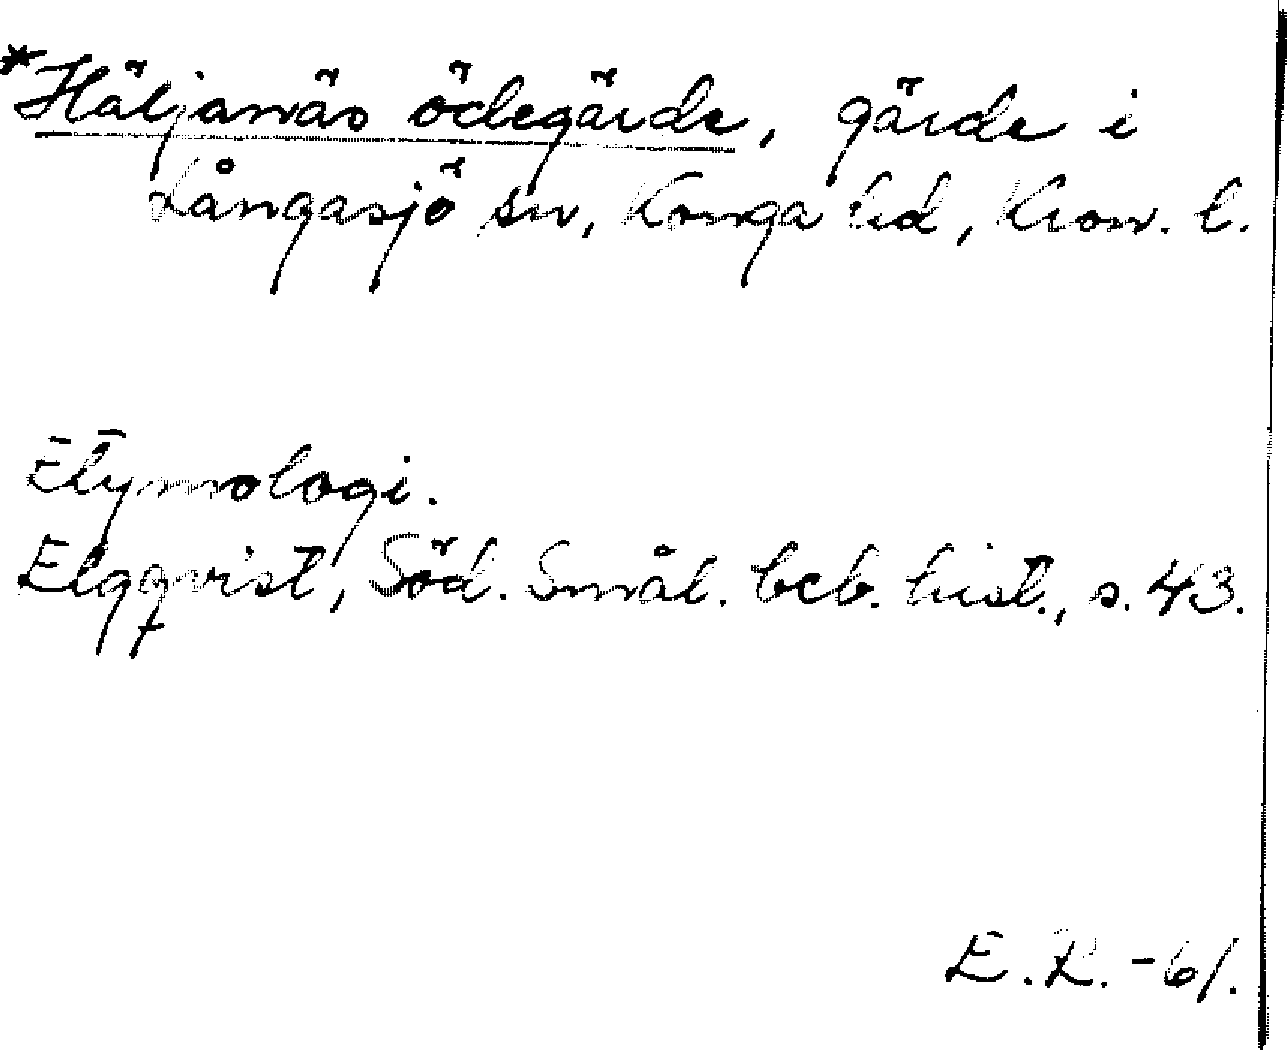 *Häljanäs ödegärde, gärde i
Långasjö sn, Konga hd, Kron. l.
Etymologi.
Elgqvist, Söd. Smål. beb. hist., s. 43.
E.R. -61.